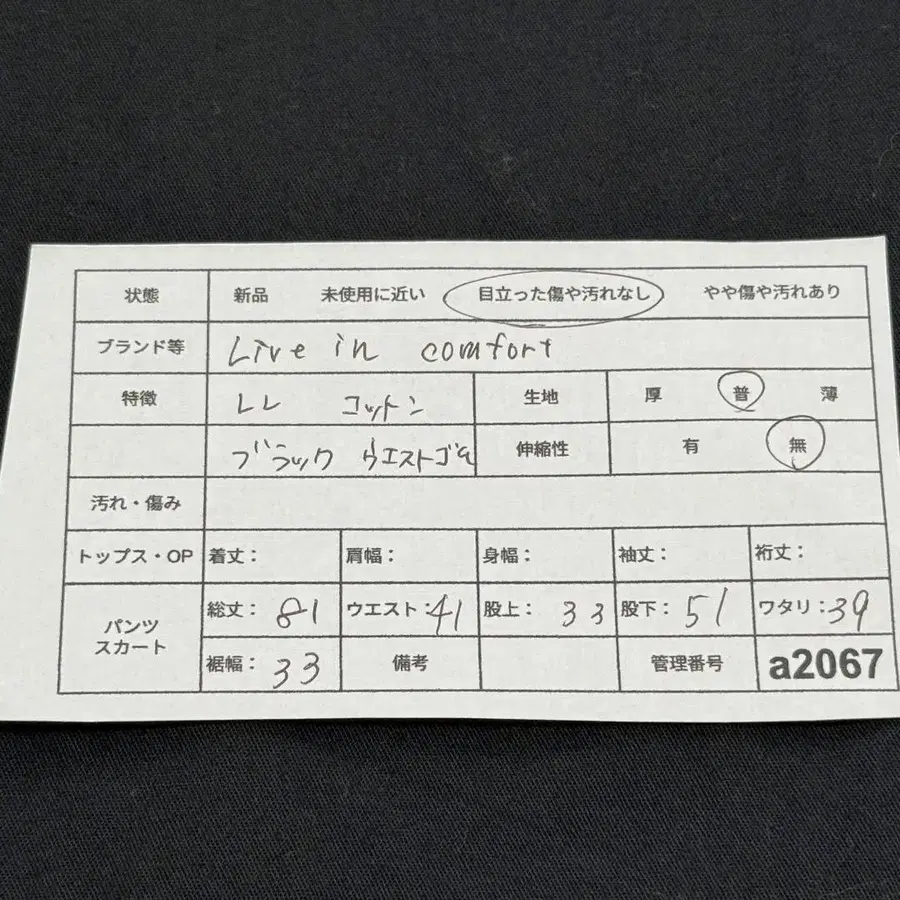 状態 新品 未使用に近い 目立った傷や汚れなし やや傷や汚れあり
ブランド等 Live in comfort
特徴 LL コットン 生地 厚 普 薄
ブラック ウエストゴム 伸縮性 有 無
汚れ・傷み
トップス・OP 着丈： 肩幅： 身幅： 袖丈： 裄丈：
パンツ スカート 総丈： 81 ウエスト：41 股上： 33 股下： 51 ワタリ：39
裾幅： 33 備考 管理番号 a2067